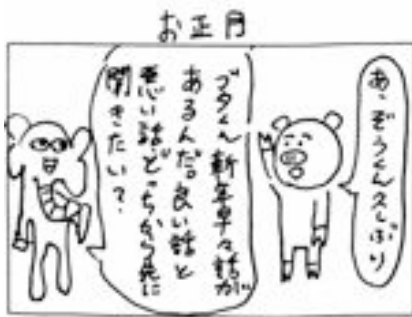 お正月
あ、ぞうくん久しぶり
ブタくん新年早々話が
あるんだ。良い話と
悪い話どっちから先に
聞きたい？